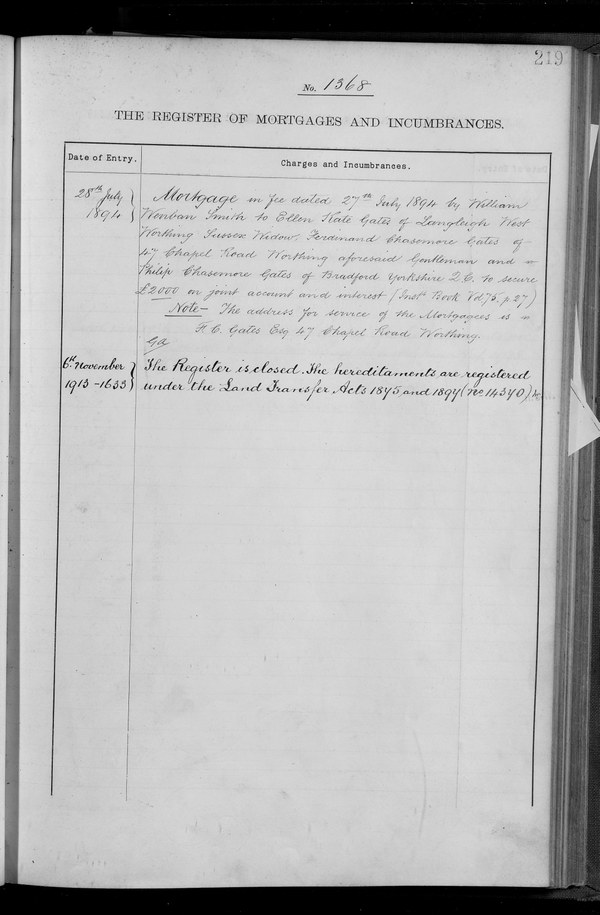 219
No. 1368
THE REGISTER OF MORTGAGES AND INCUMBRANCES.
Date of Entry.
Charges and Incumbrances.
28th July
1894
Mortgage in fee dated 27th July 1894 by William
Wenban Smith to Ellen Kate Gates of Langleigh West
Worthing Sussex Widow, Ferdinand Chasemore Gates of
47 Chapel Road Worthing aforesaid Gentleman and
Philip Chasemore Gates of Bradford Yorkshire Q.C. to secure
£2000 on joint account and interest (Inst Book Vol 75, p 27)
Note— The address for service of the Mortgagees is
F. C. Gates Esq 47 Chapel Road Worthing.
6th November
1913-1633
The Register is closed. The hereditaments are registered
under the Land Transfer Acts 1875 and 1897 (No 14370)